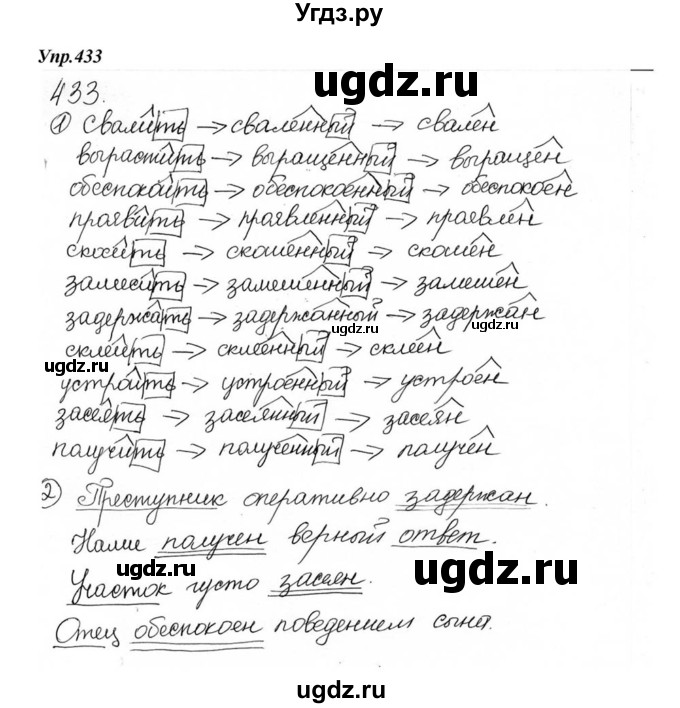 Угдз.ру
Упр.433
ugdz.ru
433.
1) Свалить → сваленный → свален
вырастить → выращенный → выращен
обеспокоить → обеспокоенный → обеспокоен
проявить → проявленный → проявлен
скосить → скошенный → скошен
замесить → замешенный → замешен
задержать → задержанный → задержан
ugdz.ru ugdz.ru
склеить → склеенный → склеен
ugdz.ru
устроить → устроенный → устроен
засеять → засеянный → засеян
получить → полученный → получен
2) Преступник оперативно задержан.
Нами получен верный ответ.
ugdz.ru ugdz.ru
Участок густо засеян.
Отец обеспокоен поведением сына.
ugdz.ru
ugdz.ru